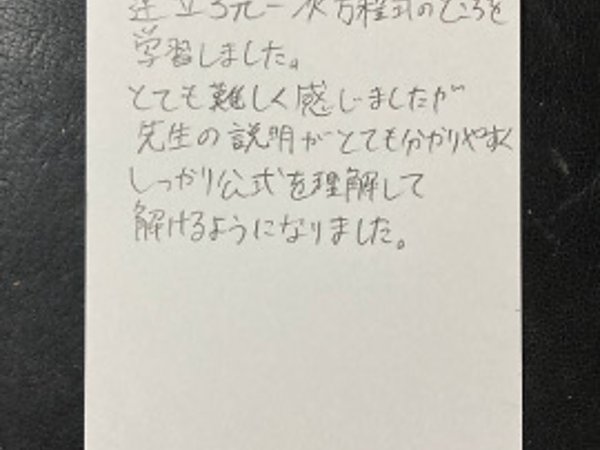 連立3元一次方程式のところを
学習しました。
とても難しく感じましたが
先生の説明がとても分かりやすく
しっかり公式を理解して
解けるようになりました。